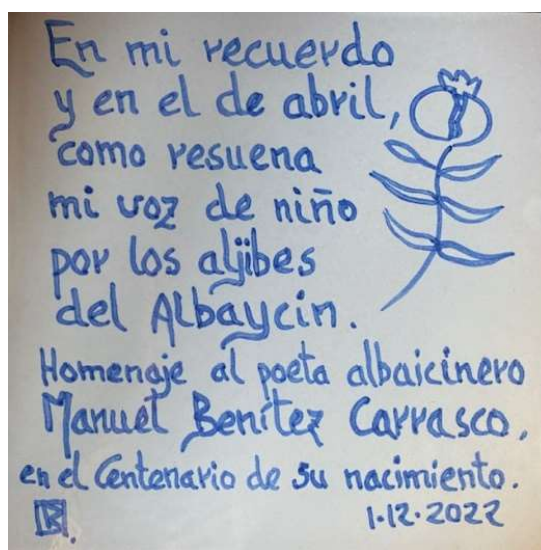 En mi recuerdo
y en el de abril,
como resuena
mi voz de niño
por los aljibes
del Albaycin.
Homenaje al poeta albaicinero
Manuel Benítez Carrasco,
en el Centenario de su nacimiento.
1·12·2022